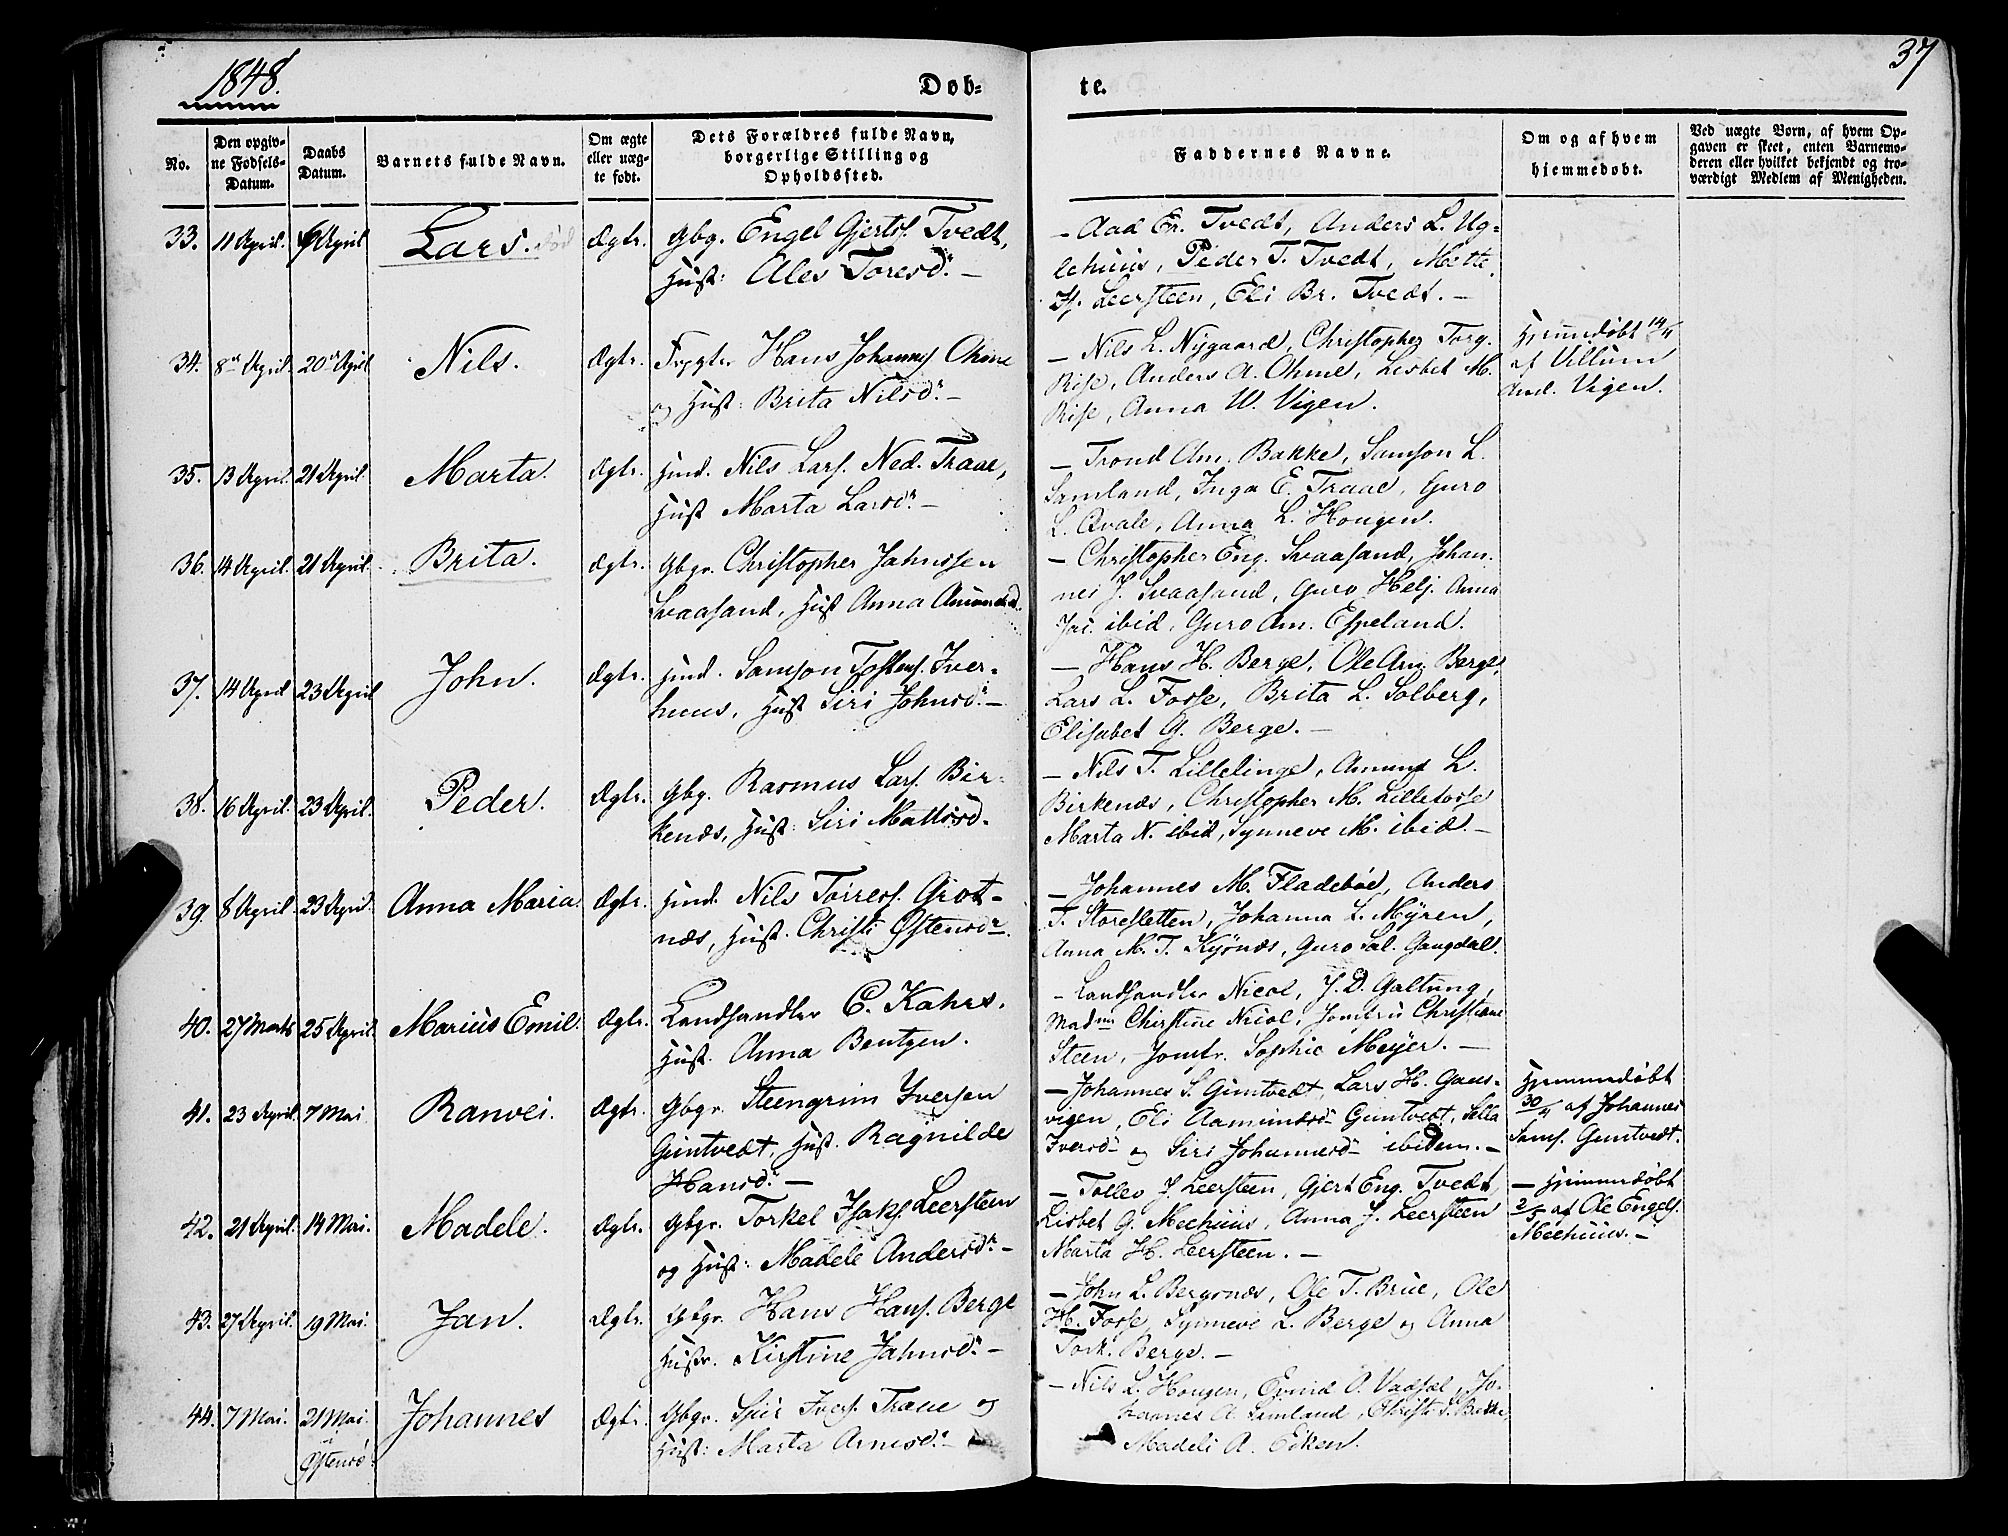 1848.
Døb-
te.
37
No.
Den opgiv-
ne Fødsels-
Datum.
Daabs
Datum.
Barnets fulde Navn.
Om ægte
eller uæg-
te født.
Dets Forældres fulde Navn,
borgerlige Stilling og
Opholdssted.
Faddernes Navne.
Om og af hvem
hjemmedøbt.
Ved uægte Born, af hvem Op-
gaven er skeet, enten Barnemo-
deren eller hvilket bekjendt og tro-
værdigt Medlem af Menigheden.
33. 11 April. April Lars. Ægte. Gbg. Engel Gjertss. Tvedt,
Hust: Ales Toresdr. —
— Aad Er. Tvedt, Anders L. Ug-
lehuus, Peder T. Tvedt, Mette
Leersteen, Eli Br. Tvedt. —
34. 8de April. 20de April Nils. Ægte. Hans Johannes Ohme
og Hust: Brita Nilsdr. —
— Nils L. Nygaard, Christopher Torg.
Rise, Anders A. Ohme, Lisbet M.
Rise, Anna W. Vigen.
Hjemmedøbt 14/4
af Villum
And. Vigen.
35. 13 April. 21 April. Marta. Ægte. Huusm. Nils Larss. Ned. Traae,
Hust Marta Larsdr. —
— Trond Am. Bakke, Samson L.
Samland, Inga E. Traae, Guro
L. Qvale, Anna L. Hougen.
36. 14 April. 21 April. Brita. Ægte. Gbgr. Christopher Jahnssen
Svaasand, Hust Anna Amundsd.
— Christopher Eng. Svaasand, Johan-
nes J. Svaasand, Guro Helj. Anna
Jac. ibid, Guro Am. Espeland.
37. 14 April 23 April John. Ægte. Huusm. Samson Tostens. Iver-
huus, Hust Siri Johnsdr. —
— Hans H. Berge, Ole Am. Berge,
Lars L. Fosse, Brita L. Solberg,
Elisabet G. Berge. —
38. 16 April. 23 April. Peder. Ægte. Gbg. Rasmus Larss. Bir-
kenæs, Hust: Siri Mattisd.
— Nils T. Lillelinge, Amund L.
Birkenæs, Christopher M. Lilletosse
Marta N. ibid, Synneve M. ibid. —
39. 8 April. 23 April. Anna Maria. Ægte. Huusm. Nils Torress. Grot-
næs, Hust. Christi Østensdr.
— Johannes M. Fladebøe, Anders
T. Storesletten, Johanna L. Myren,
Anna M. T. Kyönæs, Guro Sal. Gangdal.
40. 27 Marts 25 April. Marius Emil. Ægte. Landhandler C. Kahrs.
Hust. Anna Bentzen.
— Landhandler Nicol, J. D. Galtung,
Madme Christine Nicol, Jomfru Christiane
Steen, Jomfr. Sophie Meyer. —
41. 23 April. 7 Mai Ranvei. Ægte. Gbgr. Steengrim Iversen
Guntvedt, Hust. Ragnilde
Hansdr. —
— Johannes S. Guntvedt, Lars H. Gaus-
vigen, Eli Aamundsdr Guntvedt, Sella
Iversdr og Siri Johannesdr ibidem. —
Hjemmedøbt
30/4 af Johannes
Sams. Guntvedt.
42. 21 April. 14 Mai. Madele. Ægte. Gbgr. Torkel Isaks. Leersteen
og Hust: Madele Andersdr. —
— Tollev J. Leersteen, Gjert Eng. Tvedt,
Lisbet G. Meehuus, Anna J. Leersteen
Marta H. Leersteen. —
— Hjemmedøbt
2/5 af Ole Engels.
Meehuus. —
43. 27 April. 19 Mai. Jan. Ægte. Gbgr. Hans Hans. Berge
Hustr. Kirstine Jahnsdr. —
— John L. Bergsnæs, Ole T. Brue, Ole
H. Fosse, Synneve L. Berge og Anna
Tork. Berge. —
44. 7 Mai. 21 Mai. Johannes Ægte. Gbgr. Sjur Ivers. Traae og
Østensö. Hust: Marta Arnesdr. —
— Nils L. Hougen, Eivind O. Vadsel, Jo-
hannes A. Simland, Christi S. Bakke,
Madeli A. Eiken.